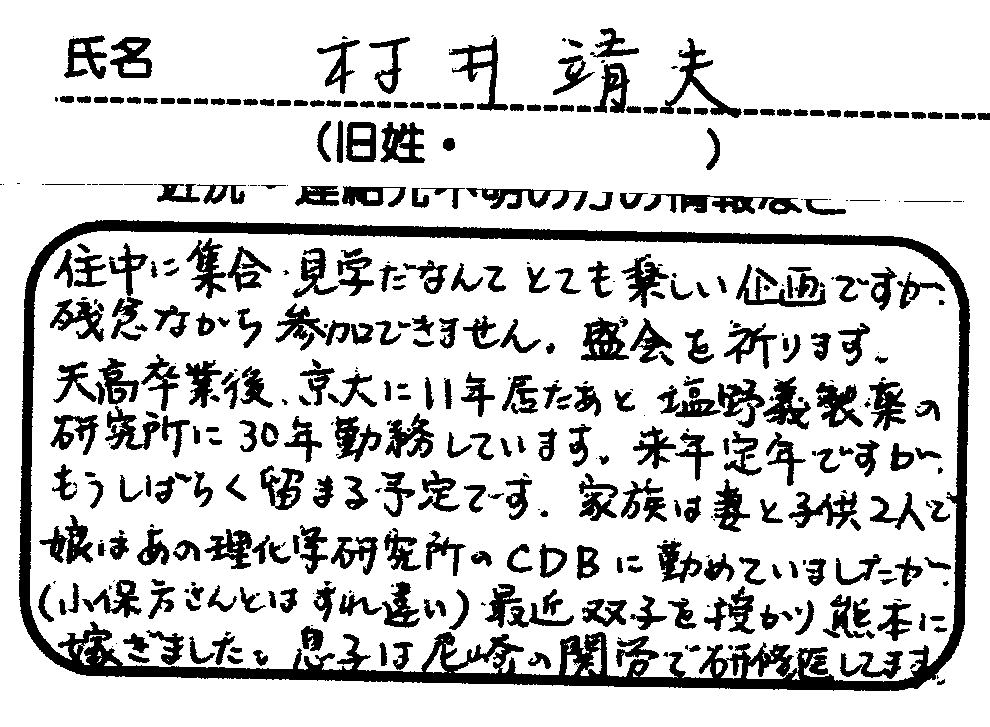 氏名 村井 靖夫
(旧姓・ )
近況・連絡先不明の方の情報など
住中に集合、見学だなんてとても楽しい企画ですが、
残念ながら参加できません。盛会を祈ります。
天高卒業後、京大に11年居たあと塩野義製薬の
研究所に30年勤務しています。来年定年ですが、
もうしばらく留まる予定です。家族は妻と子供2人で
娘はあの理化学研究所のCDBに勤めていましたが、
(小保方さんとはすれ違い)最近双子を授かり熊本に
嫁ぎました。息子は尼崎の関労で研修医してます。